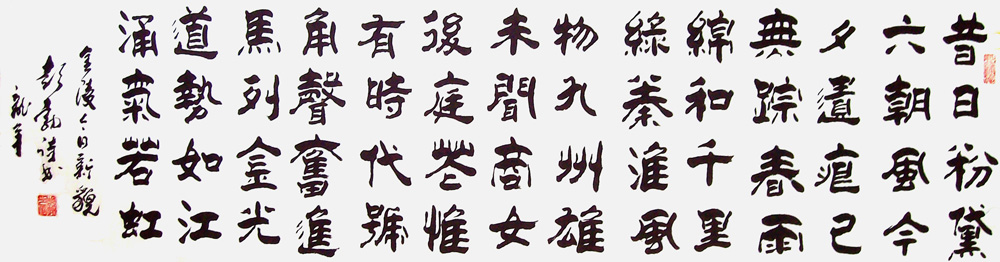 昔日粉黛
六朝風今
夕遺痕已
無踪春雨
綿和千里
綠秦淮風
物九州雄
未聞商女
後庭花惟
有時代號
角聲奮進
馬列金光
道勢如江
涌氣若虹
金陵今日新貌
彭
龍年